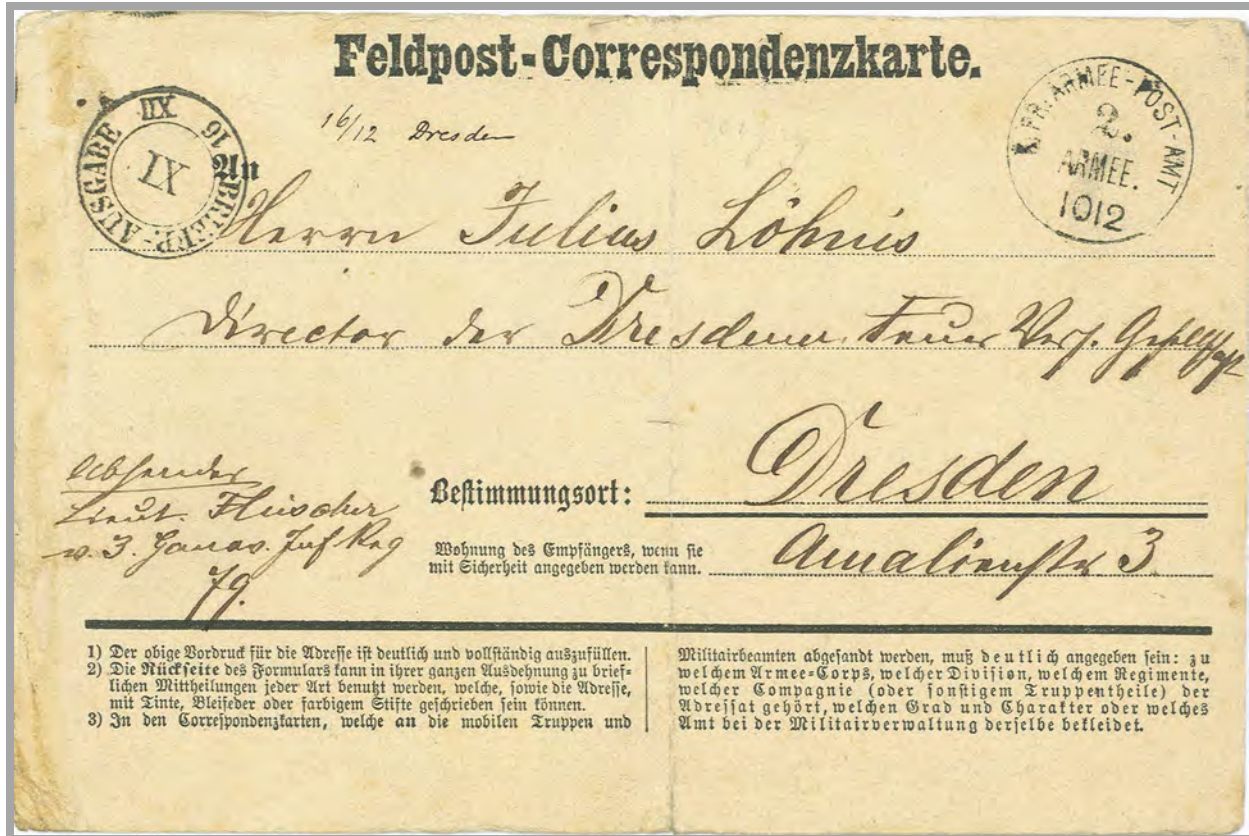 Feldpost-Correspondenzkarte.
AUSGABE IIX 16 BRIEF-
XI
K.PR.ARMEE-POST-AMT
2.
ARMEE.
1012
16/12 Dresden
An
Herrn Julius Löhnis
Director der Dresdener Feuer Vers. Gesellschaft
Bestimmungsort: Dresden
Wohnung des Empfängers, wenn sie
mit Sicherheit angegeben werden kann. Amalienstr 3
Absender
Lieut.
v. 3. Hanov. Inf Reg
79.
1) Der obige Vordruck für die Adresse ist deutlich und vollständig auszufüllen.
2) Die Rückseite des Formulars kann in ihrer ganzen Ausdehnung zu brief-
lichen Mittheilungen jeder Art benutzt werden, welche, sowie die Adresse,
mit Tinte, Bleifeder oder farbigem Stifte geschrieben sein können.
3) In den Correspondenzkarten, welche an die mobilen Truppen und
Militairbeamten abgesandt werden, muß deutlich angegeben sein: zu
welchem Armee-Corps, welcher Division, welchem Regimente,
welcher Compagnie (oder sonstigem Truppentheile) der
Adressat gehört, welchen Grad und Charakter oder welches
Amt bei der Militairverwaltung derselbe bekleidet.